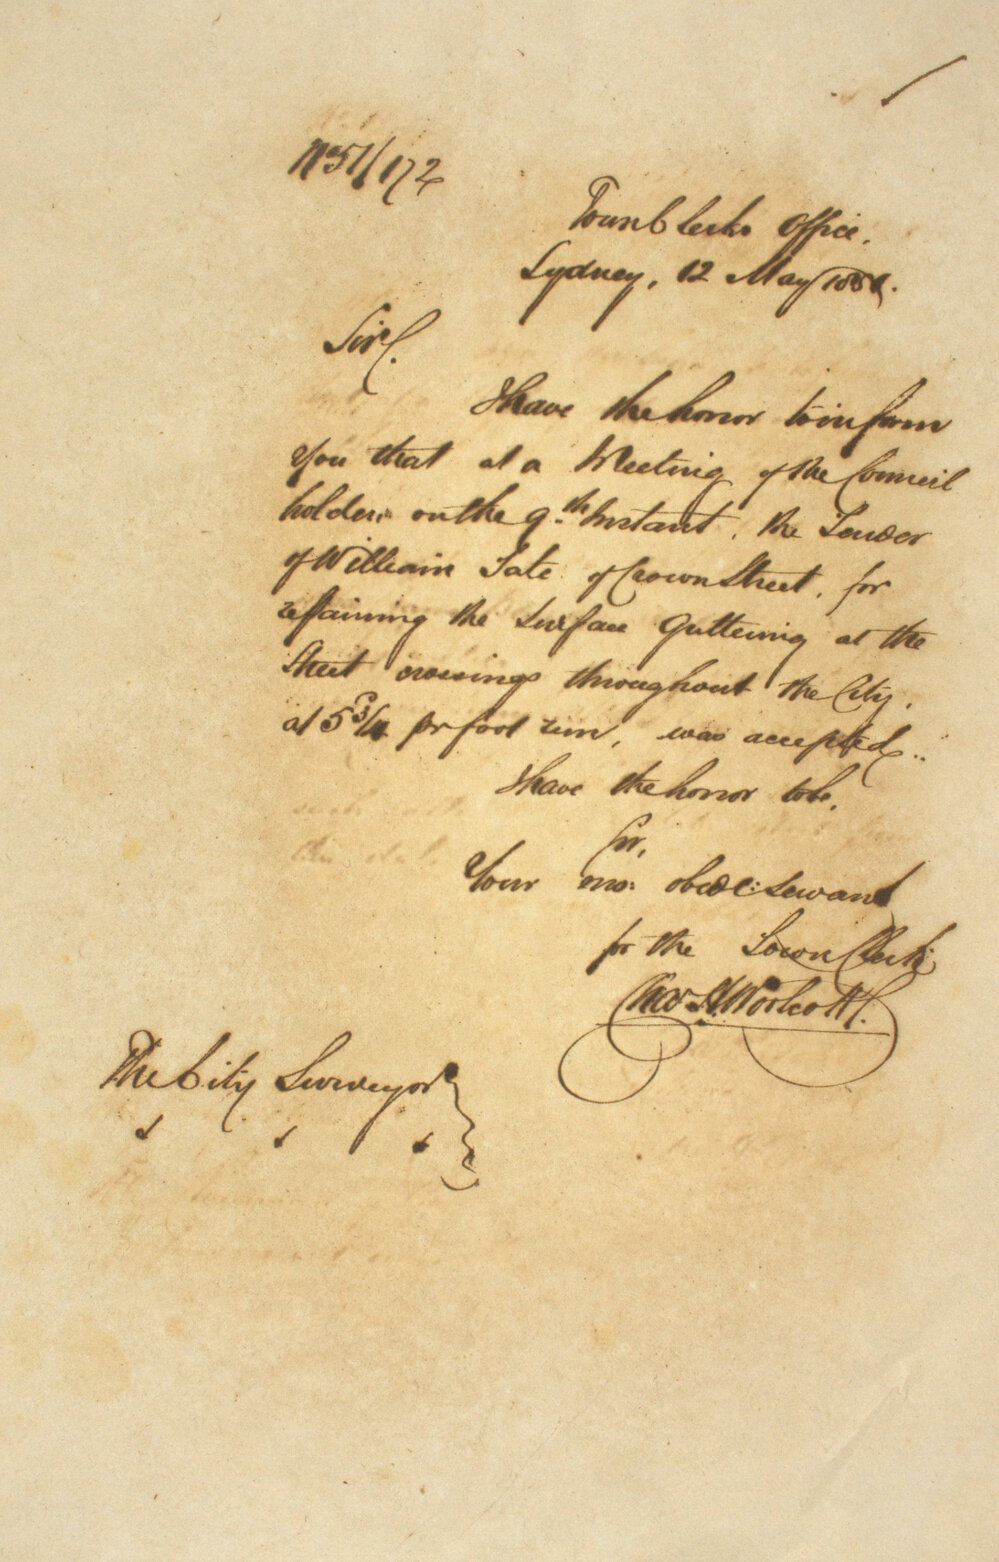 No 51/172
Town Clerks Office.
Sydney, 12 May 1851.
Sir,
I have the honor to inform
you that at a Meeting of the Council
holden on the 9th Instant, the Tender
of William Tate of Crown Street, for
repairing the Surface Guttering at the
Street crossings throughout the City,
at 5¾ pr foot run, was accepted..
I have the honor to be,
Sir,
Your mo: obedt: Servant
for the Town Clerk
Chas H. Woolcott
The City Surveyor